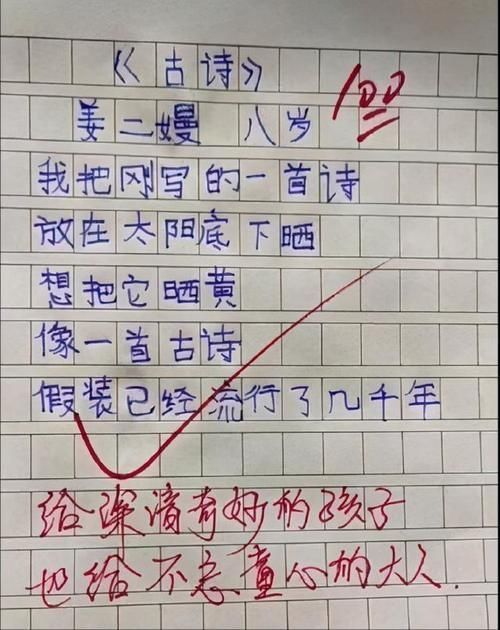 《古诗》
100
姜二嫚 八岁
我把刚写的一首诗
放在太阳底下晒
想把它晒黄
像一首古诗
假装已经流行了几千年
给深谙奇妙的孩子
也给不忘童心的大人.